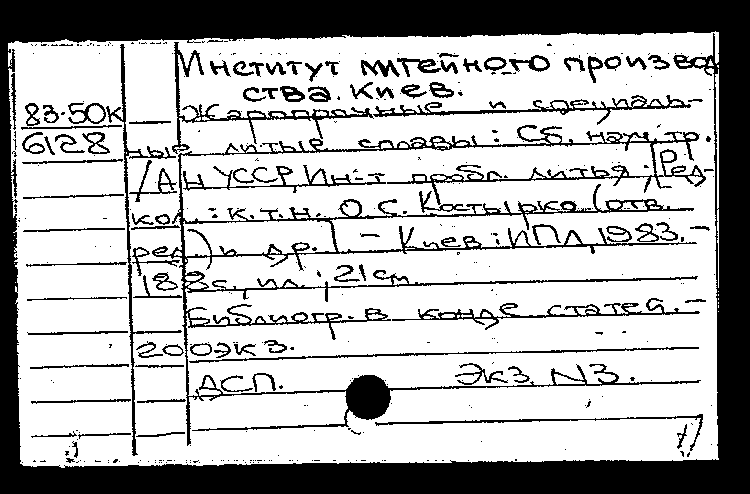 Институт литейного производ
ства. Киев.
83-50к Жаропрочные и специаль-
6128 ные литые сплавы: Сб. науч. тр.
/АН УССР, Ин-т пробл. литья; [Ред-
кол.: к.т.н. О.С. Костырко (отв.
ред.) и др.] – Киев: ИПЛ, 1983. –
188с., ил.; 21см.
Библиогр. в конце статей. –
200экз.
ДСП. Экз. N3.